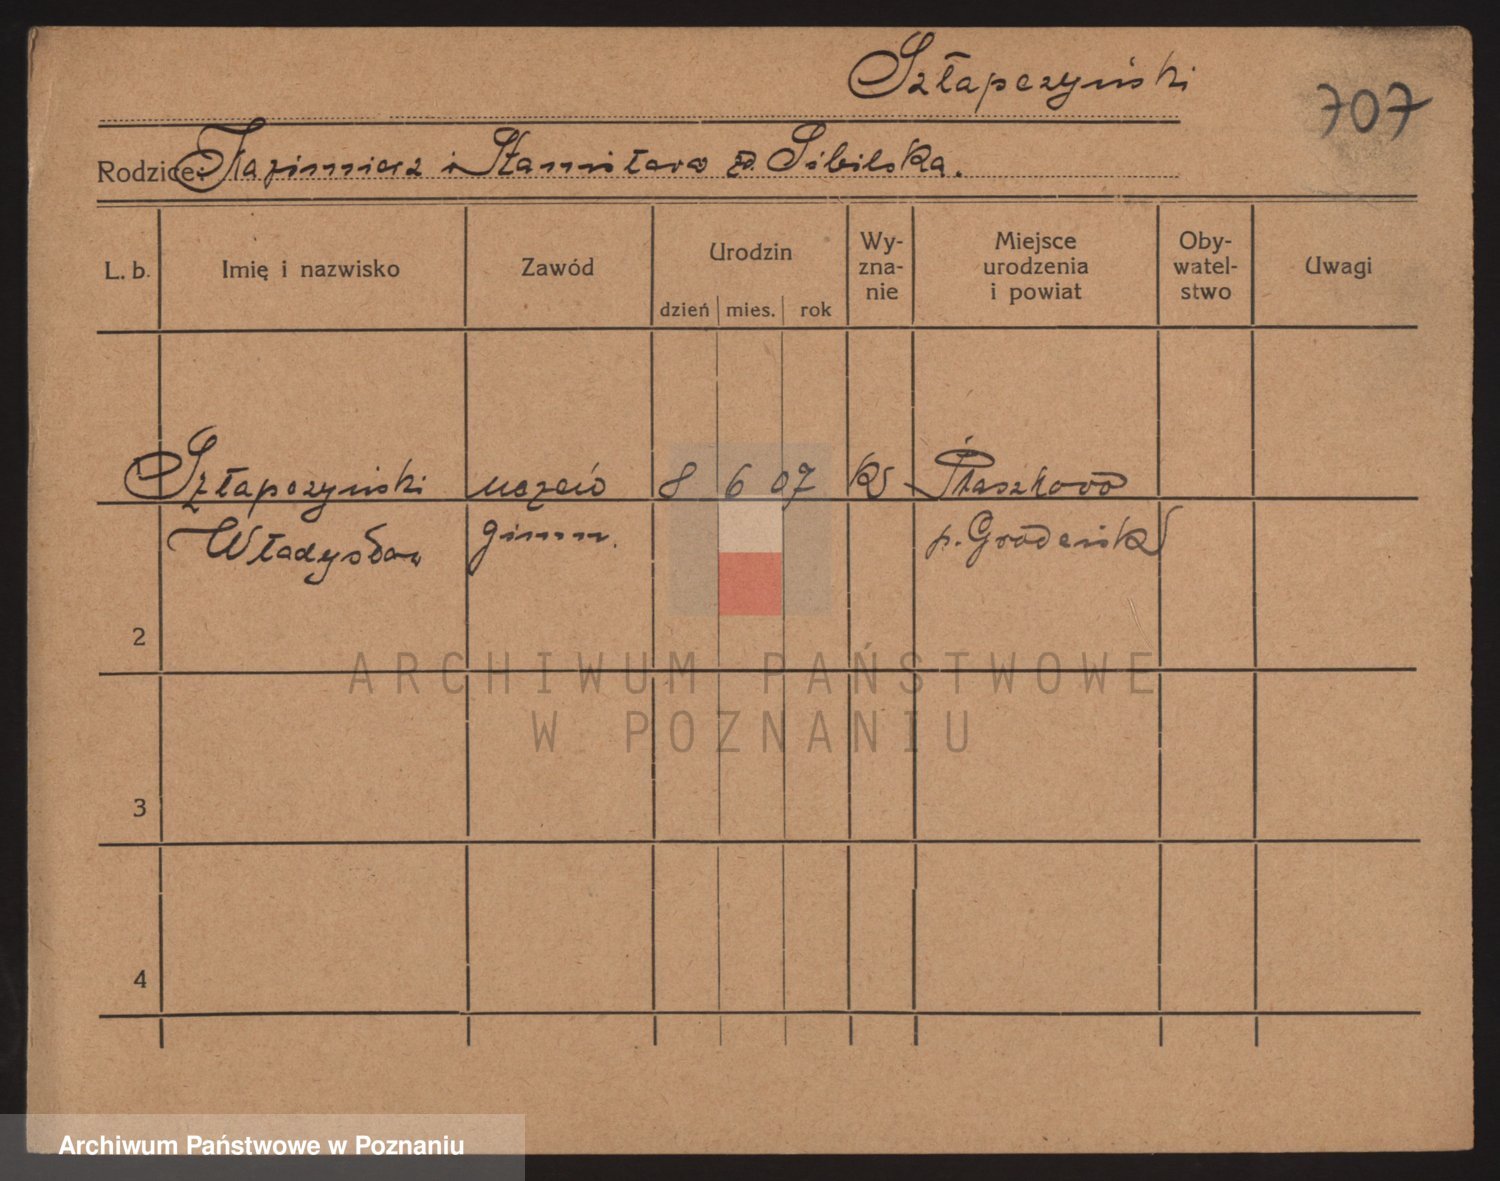 Szłapczyński
707
Rodzice: Kazimierz i Stanisława zd. Sibilska.
L. b. Imię i nazwisko Zawód Urodzin dzień mies. rok Wy- zna- nie Miejsce urodzenia i powiat Oby- watel- stwo Uwagi
Szłapczyński uczeń 8 6 07 Ptaszkowo
Władysław gimn. p. Grodzisk
2
ARCHIWUM PAŃSTWOWE
W POZNANIU
3
4
Archiwum Państwowe w Poznaniu